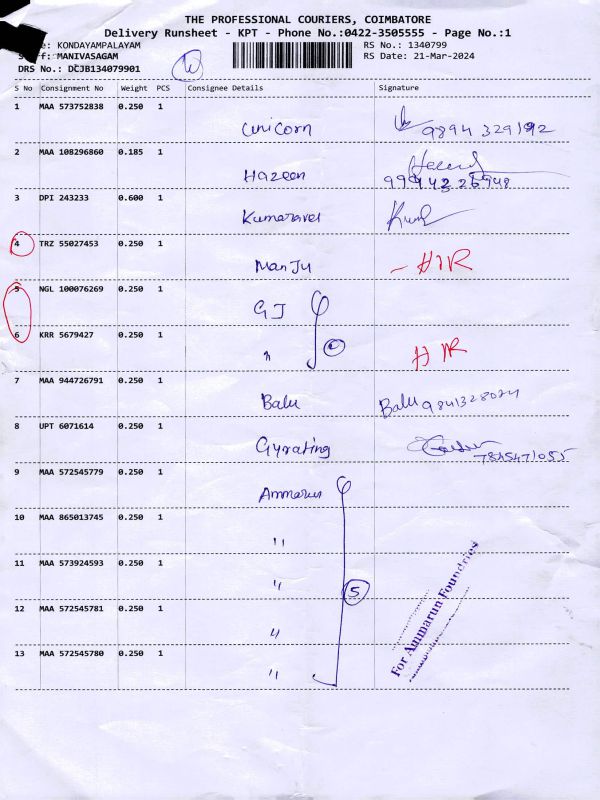 THE PROFESSIONAL COURIERS, COIMBATORE
Delivery Runsheet - KPT - Phone No.:0422-3505555 - Page No.:1
: KONDAYAMPALAYAM RS No.: 1340799
: MANIVASAGAM RS Date: 21-Mar-2024
DRS No.: DCJB134079901
S No Consignment No Weight PCS Consignee Details Signature
1 MAA 573752838 0.250 1
Unicorn 9894 329192
2 MAA 108296860 0.185 1
Hazeen
3 DPI 243233 0.600 1
Kumaravel
4 TRZ 55027453 0.250 1
ManJu
5 NGL 100076269 0.250 1
GJ
6 KRR 5679427 0.250 1
"
7 MAA 944726791 0.250 1
Balu Balu
8 UPT 6071614 0.250 1
Gyrating
9 MAA 572545779 0.250 1
Ammarun
10 MAA 865013745 0.250 1
"
11 MAA 573924593 0.250 1
" 5
12 MAA 572545781 0.250 1
"
13 MAA 572545780 0.250 1
"
For Ammarun Foundries